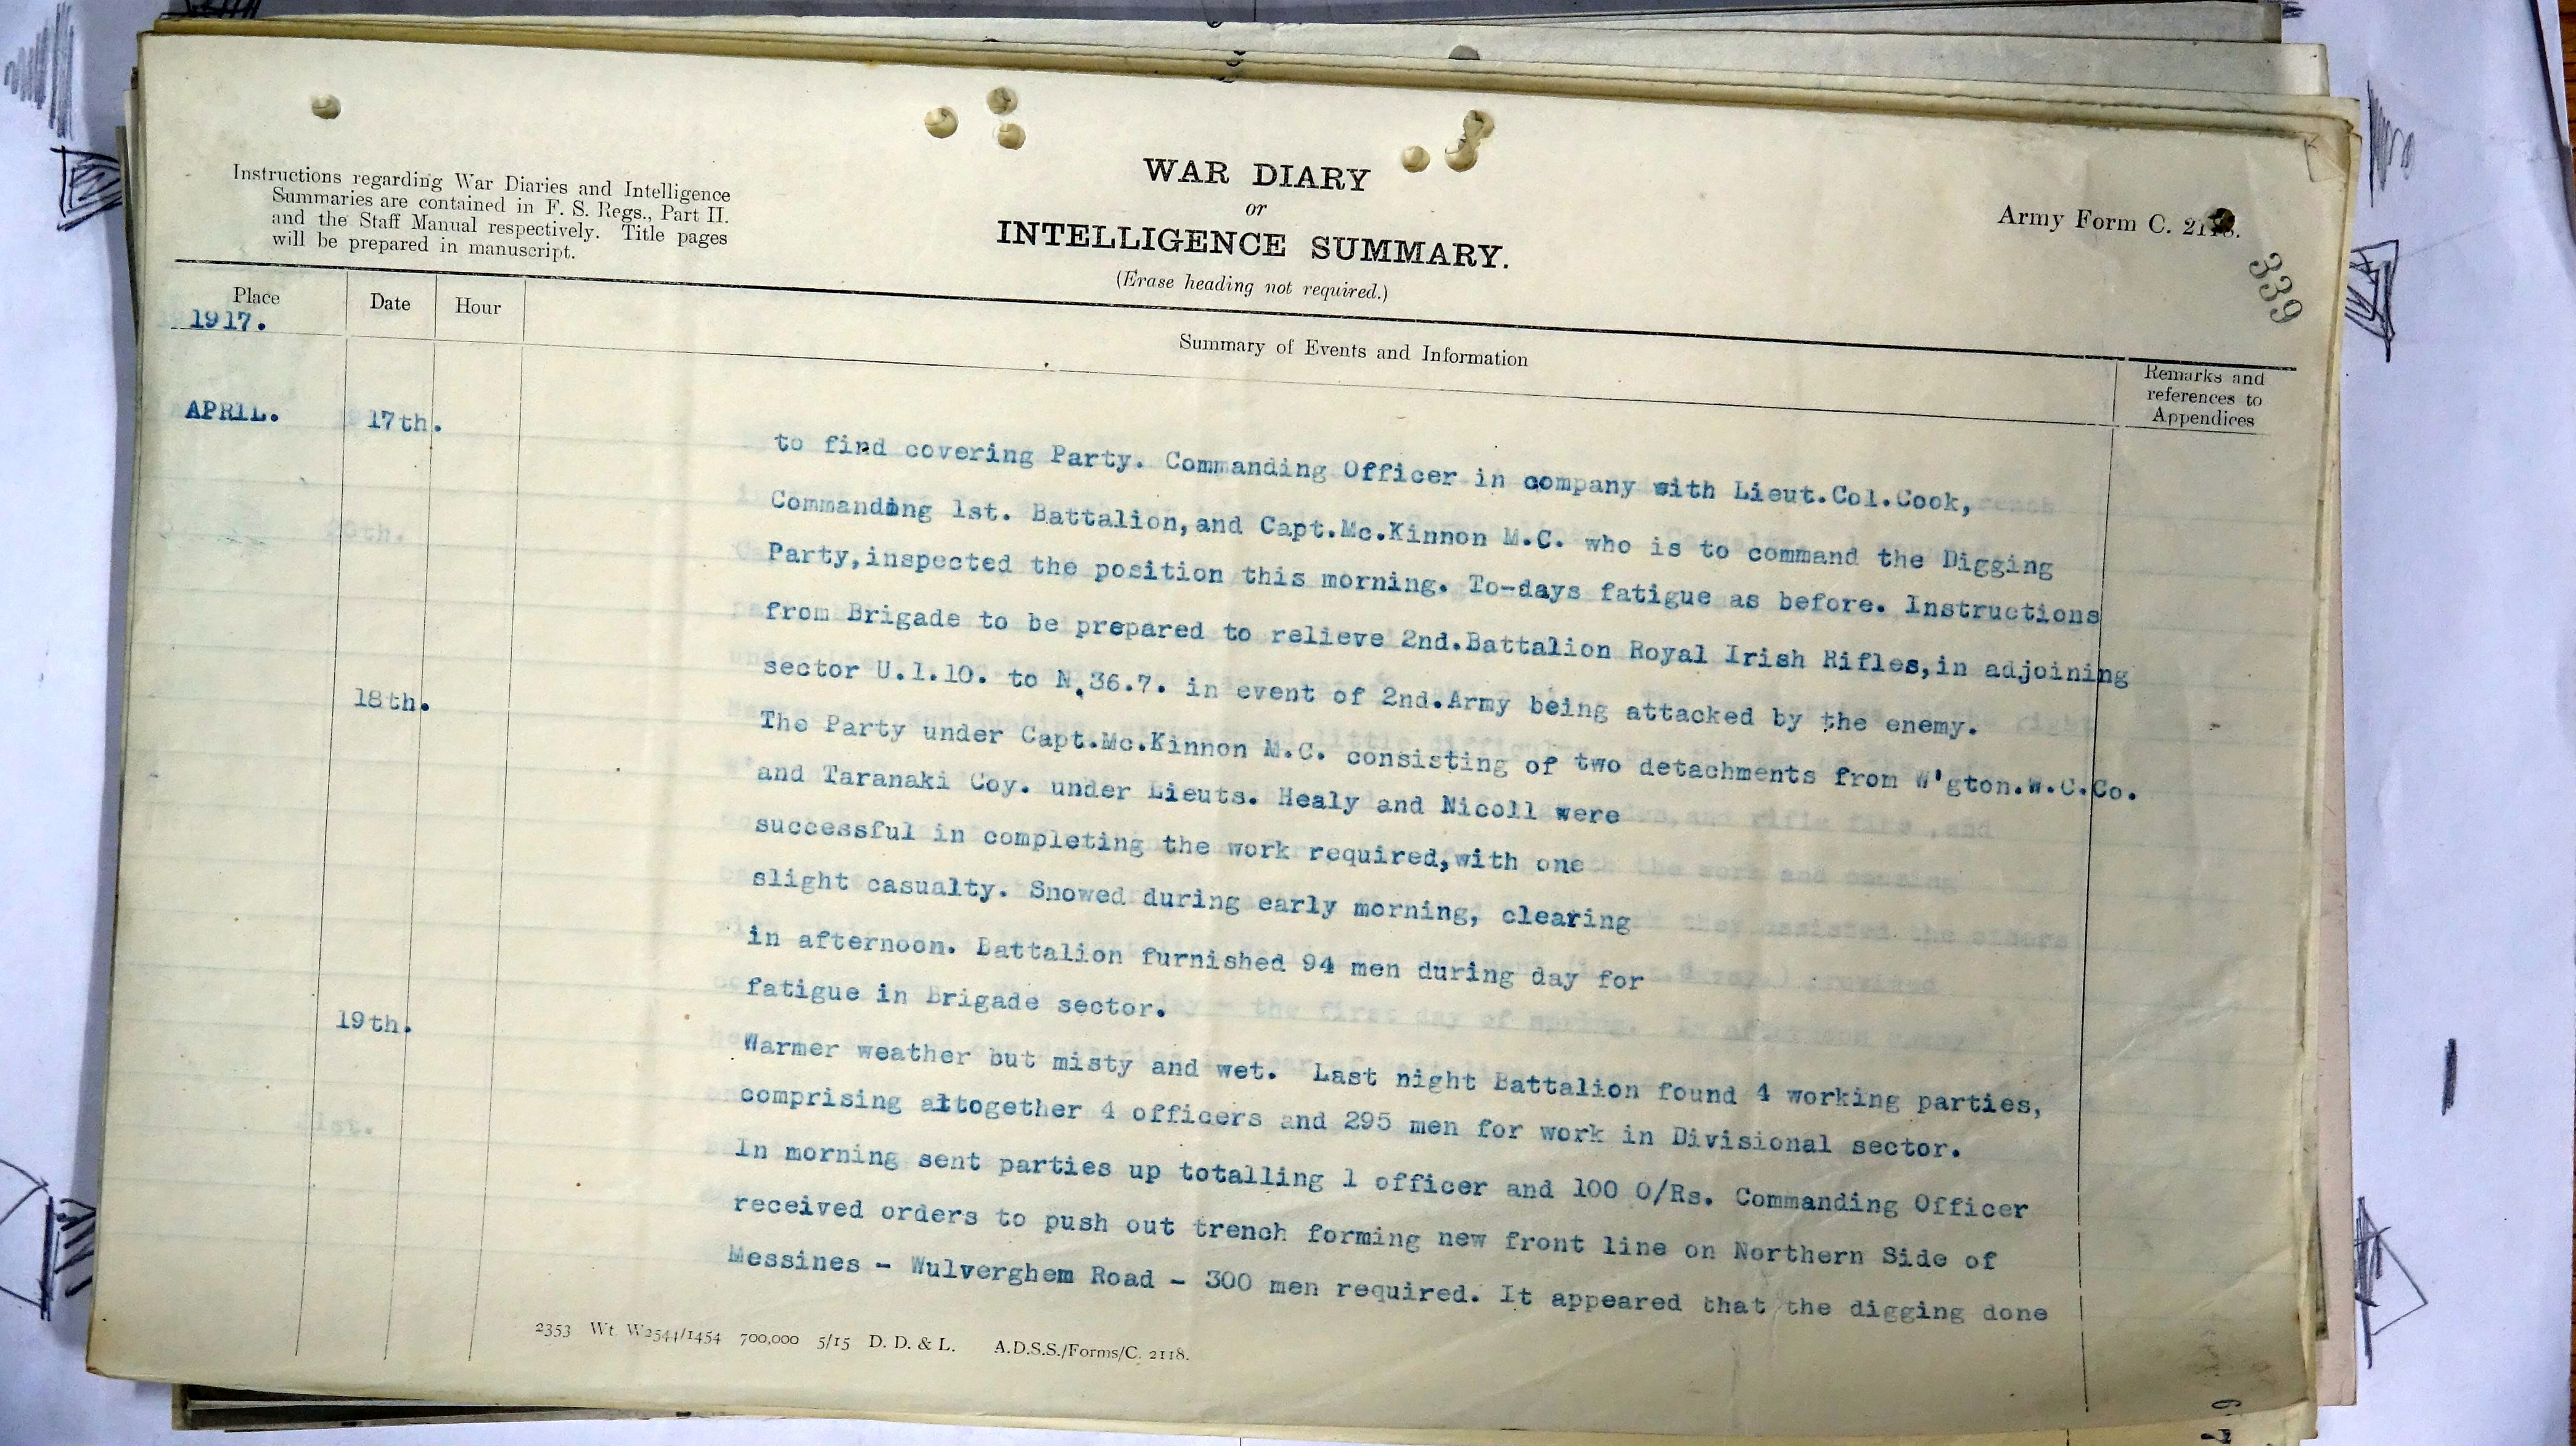 Instructions regarding War Diaries and Intelligence
Summaries are contained in F. S. Regs., Part II.
and the Staff Manual respectively. Title pages
will be prepared in manuscript.
WAR DIARY
or
INTELLIGENCE SUMMARY.
(Erase heading not required.)
Army Form C. 2118.
339
Place
Date
Hour
Summary of Events and Information
Remarks and
references to
Appendices
1917.
APRIL. 17th.
to find covering Party. Commanding Officer in company with Lieut.Col.Cook,
Commanding 1st. Battalion,and Capt.Mc.Kinnon M.C. who is to command the Digging
Party,inspected the position this morning. To-days fatigue as before. Instructions
from Brigade to be prepared to relieve 2nd.Battalion Royal Irish Rifles,in adjoining
sector U.1.10. to N.36.7. in event of 2nd.Army being attacked by the enemy.
18th.
The Party under Capt.Mc.Kinnon M.C. consisting of two detachments from W'gton.W.C.Co.
and Taranaki Coy. under Lieuts. Healy and Nicoll were
successful in completing the work required,with one
slight casualty. Snowed during early morning, clearing
in afternoon. Battalion furnished 94 men during day for
fatigue in Brigade sector.
19th.
Warmer weather but misty and wet. Last night Battalion found 4 working parties,
comprising altogether 4 officers and 295 men for work in Divisional sector.
In morning sent parties up totalling 1 officer and 100 O/Rs. Commanding Officer
received orders to push out trench forming new front line on Northern Side of
Messines - Wulverghem Road - 300 men required. It appeared that the digging done
2353 Wt. W2544/1454 700,000 5/15 D. D. & L. A.D.S.S./Forms/C. 2118.